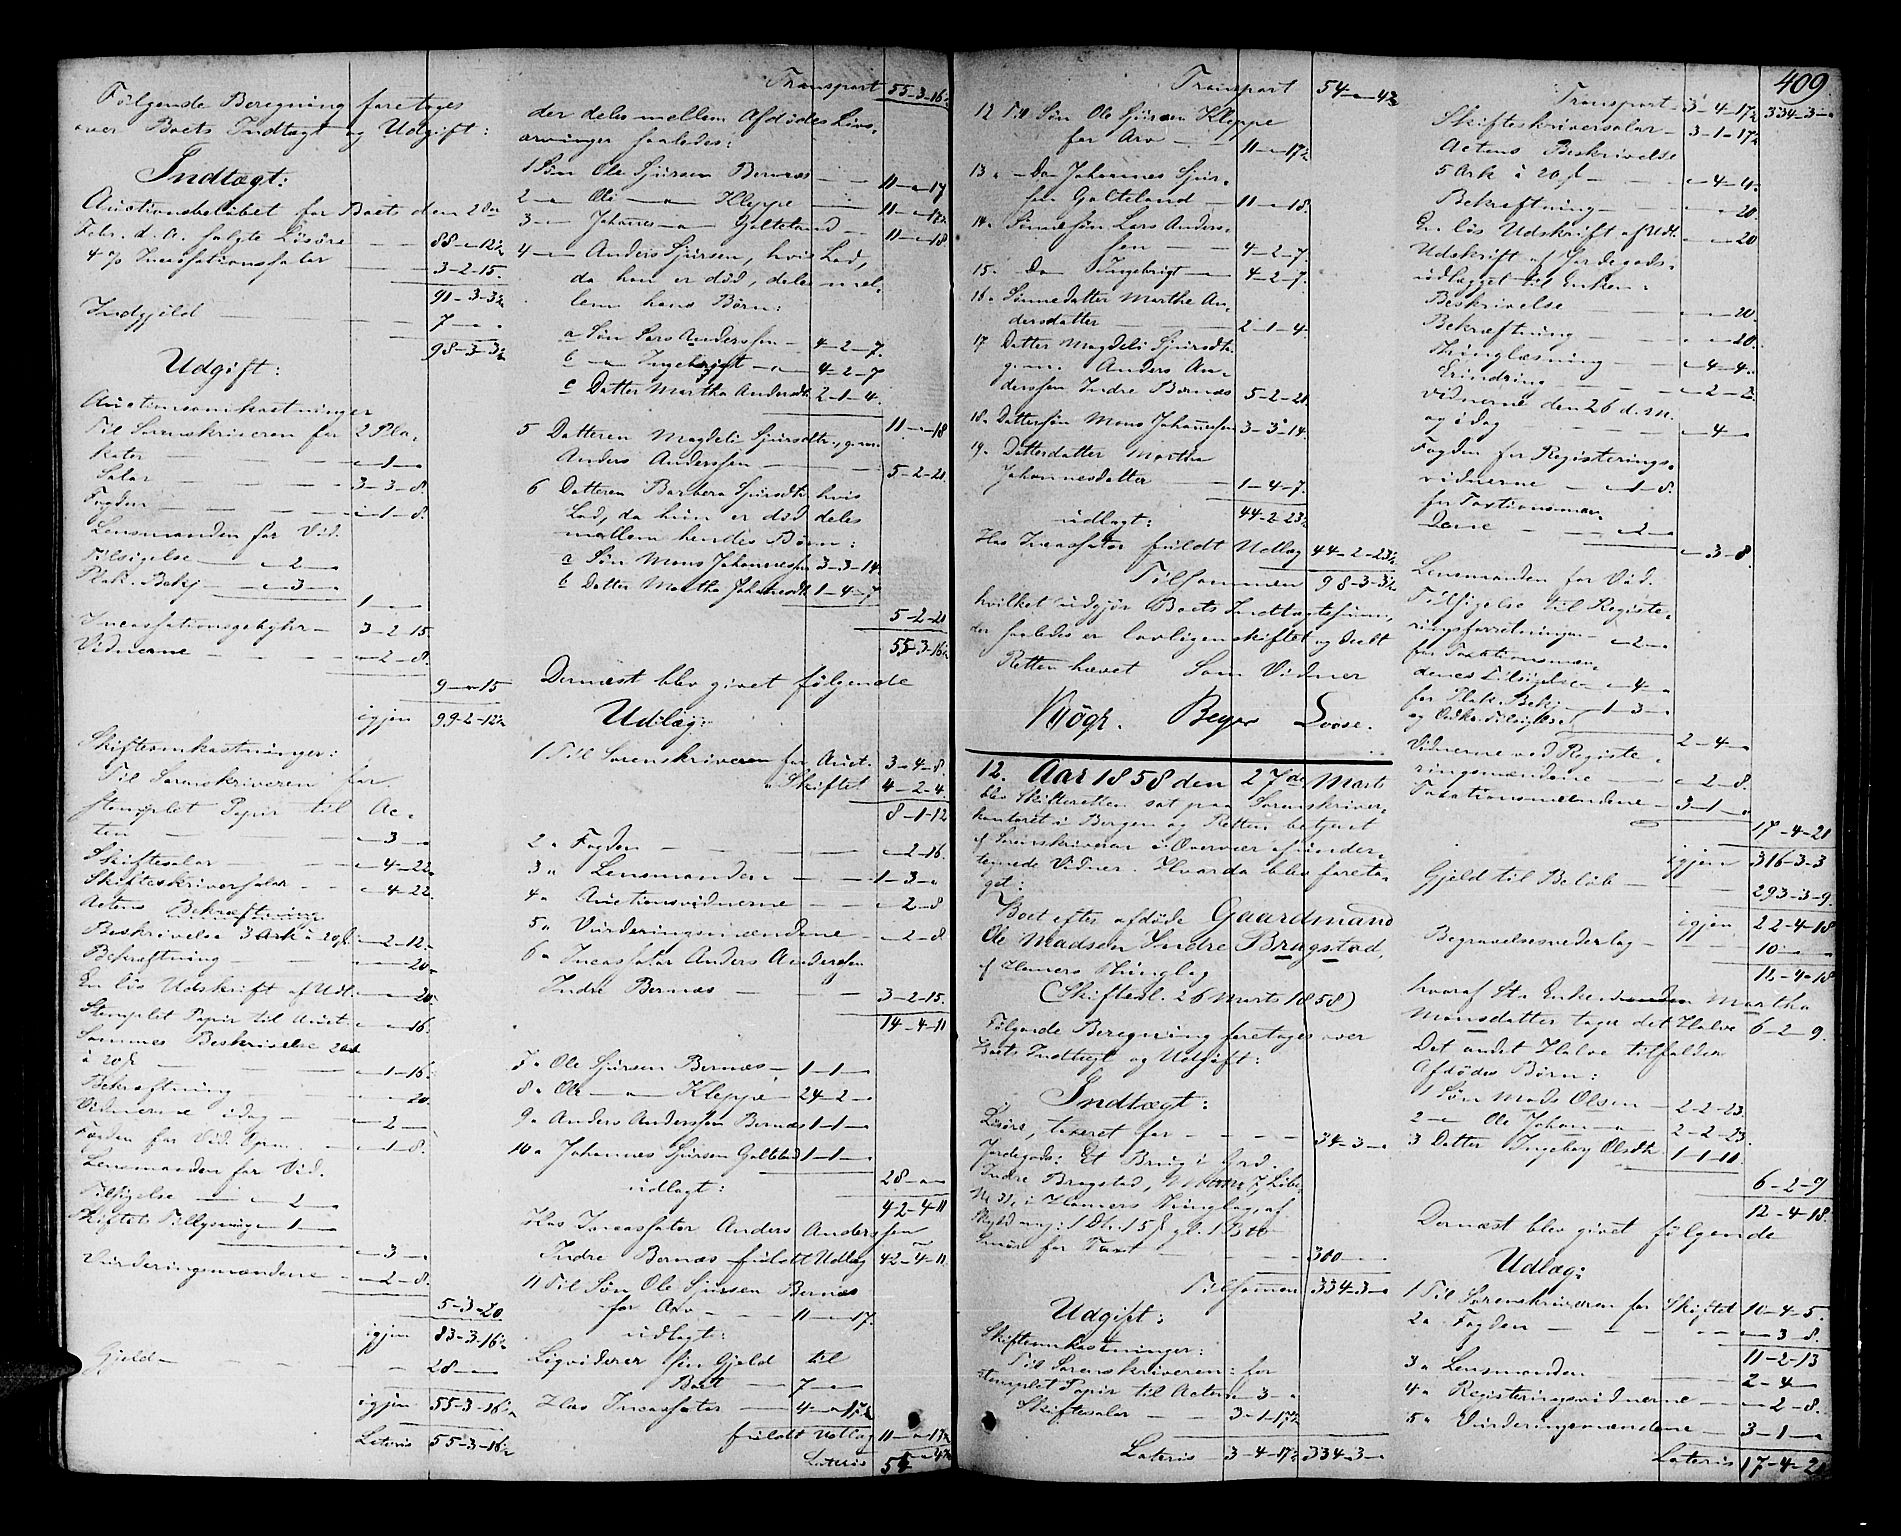 Følgende Beregning foretoges
over Boets Indtægt og Udgift:
Indtægt:
Auctionsbeløbet for Boets den 2den
Febr. d. A. solgte Løsøre — 88 - " - 12½
4 % Incassationssalær — 3-2-15.
91-3-3½
Indgjeld — 7 - " - "
98-3-3½
Udgift:
Auctionsomkostninger
Til Sorenskriveren for 2 Pla-
kater — " - 1 - "
Salær — 3-3-8.
Fogden — " - 1 - 8.
Lensmanden for Vid.
Tilsigelse — " - 2 - "
Plak. Bekj. — " - 3 - "
1 - " - "
Incassationsgebyhr — 3-2-15
Vidnerne — " - 2 - 8.
9 - " - 15
igjen 99-2-12½
Skifteomkostninger:
Til Sorenskriveren for
stemplet Papir til Ac-
ten — " - 3 - "
Skiftesalær — " - 4 - 22.
Skifteskriversalær — " - 4 - 22
Actens Bekræftning
Beskrivelse 3 Ark à 20 ß. — " - 2 - 12.
Bekræftning — " - " - 20.
En løs Udskrift af Udl. — " - " - 20.
Stemplet Papir til Auct. — " - " - 16.
Sammes Beskrivelse 2 Ark
à 20 ß — " - 1 - 16.
Bekræftning — " - " - 20.
Vidnerne idag — " - 2 - "
Fogden for Vid. Opn. — " - 1 - 8.
Lensmanden for Vid.
Tilsigelse — " - 2 - "
Skiftets Tillysning — 1 - "
" - 3 - "
Vurderingsmændene — " - 2 - 8.
5-3-20
igjen 83-3-16½
Gjeld — 28 - " - "
igjen 55-3-16½
Lateris 55-3-16½
Transport 55-3-16½
der deles mellem Afdødes Livs-
arvinger saaledes:
1 Søn Ole Sjursen Bernæs — 11 - " - 17
2 — " — Ole — " — Kleppe — 11 - " - 17½
3 — " — Johannes — " — Galteland — 11 - " - 18
4 — " — Anders Sjursen, hvis Lod,
da han er død, deles mel-
lem hans Børn:
a Søn Lars Anderssen — 4-2-7.
b — " — Ingebrigt — " — 4-2-7
c Datter Martha Andersdtr. 2-1-4.
11 - " - 18
5 Datteren Magdeli Sjursdtr., g. m.
Anders Anderssen — 5-2-21.
6 Datteren Barbera Sjursdtr. hvis
Lod, da hun er død deles
mellem hendes Børn:
a Søn Mons Johannessen 3-3-14.
b Datter Martha Johannesdtr. 1-4-7
5-2-21
55-3-16½
Dernæst blev givet følgende
Udlæg:
1 Til Sorenskriveren for Auct. 3-4-8.
" Skiftet 4-2-4.
8-1-12
2 " Fogden — " - 2 - 16.
3 " Lensmanden — 1-3 - "
4 " Auctionsvidnerne — " - 2 - 8
5 " Vurderingsmændene — " - 2 - 8
6 " Incassator Anders Anderssen
Indre Bernæs — 3-2-15.
14-4-11
7 " Ole Sjursen Bernæs — 1-1 - "
8 " Ole — " — Kleppe — 24-2 - "
9 " Anders Anderssen Bernæs 1-1 - "
10 " Johannes Sjursen Galteland 1-1 - "
28 - " - "
udlagt: 42-4-11
Hos Incassator Anders Anderssen
Indre Bernæs fuldt Udlæg 42-4-11.
11 Til Søn Ole Sjursen Bernæs
for Arv — 11 - " - 17.
udlagt:
Liqviderer sin Gjeld til
Boet — 7 - " - "
Hos Incassator — 4 - " - 17½
fuldt Udlæg 11 - " - 17½
Lateris 54 - " - 4½
Transport 54 - " - 4½
12 Til Søn Ole Sjursen Kleppe
for Arv — 11 - " - 17½
13 " — Do Johannes Sjur-
sen Galteland — 11 - " - 18.
14 " Sønnesøn Lars Anders-
sen — 4-2-7.
15 " — Do Ingebrigt — " — 4-2-7.
16 " Sønnedatter Marthe An-
dersdatter — 2-1-4.
17 Datter Magdeli Sjursdtr.
g. m. Anders An-
derssen Indre Bernæs 5-2-21.
18 " Dattersøn Mons Johannessen 3-3-14.
19 " Datterdatter Martha
Johannesdatter — 1-4-7.
udlagt: 44-2-23½
Hos Incassator fuldt Udlæg 44-2-23½
Tilsammen 98-3-3½
hvilket udgjør Boets Indtægtssum,
der saaledes er lovligen skiftet og deelt
Retten hævet Som Vidner
Bøgr. Beyer Loose.
12. Aar 1858 den 27de Marts
blev Skifteretten sat paa Sorenskriver-
kontoret i Bergen og Retten betjent
af Sorenskriveren i Overvær af under-
tegnede Vidner. Hvorda blev foreta-
get:
Boet efter afdøde Gaardmand
Ole Madsen Indre Bragstad,
af Hamers Thinglag
(Skiftesl. 26 Marts 1858)
Følgende Beregning foretoges over
Boets Indtægt og Udgift:
Indtægt:
Løsøre, taxeret for — 34-3 - "
Jordegods: Et Brug i Grd.
Indre Bragstad, Matr. No 7, Løbe-
No 31, i Hamers Thinglag, af
Skyld ny: 1 Dlr. 1 5 ß gl. 1 Bto
Smør for Taxt — 300 - " - "
Tilsammen 334-3 - "
Udgift:
Skifteomkostninger:
Til Sorenskriveren: for
stemplet Papir til Acten " - 3 - "
Skiftesalær — 3-1-17½
Lateris 3-4-17½ 334-3 - "
409
Transport 3-4-17½ 334-3 - "
Skifteskriversalær — 3-1-17½
Actens Beskrivelse
5 Ark à 20 ß — " - 4 - 4.
Bekræftning — " - " - 20.
En løs Udskrift af Udl. — " - " - 20
Udskrift af Jordegods-
udlægget til Enken.
Beskrivelse — " - " - 20.
Bekræftning — " - " - 20.
Thinglæsning — " - 4 - 4.
Erindring — " - 2 - 2.
Vidnerne den 26 d. M.
og idag — " - 4 - "
Fogden for Registerings-
vidnerne — " - 1 - 8.
for Taxtionsmæn-
dene — " - 2 - "
" - 3 - 8.
Lensmanden for Vid.
Tilsigelse til Registe-
ringsforretningen — " - 2 - "
for Taxationsmæn-
denes Tilsigelse — " - 4 - "
for Plak. Bekj.
og Tilsigelse 1-3 - "
2-4 - "
Vidnerne ved Registe-
ringsmændene — " - 2 - 8.
Taxationsmændene — 3-1 - "
17-4-21
igjen 316-3-3
Gjeld til Beløb — 293-3-9.
igjen 22-4-18
Begravelsesnederlag — 10 - " - "
12-4-18
hvoraf Enken Martha
Monsdatter tager det Halve 6-2-9.
Det andet Halve tilfalder
Afdødes Børn:
1 Søn Mads Olsen — 2-2-23.
2 — " — Ole Johan — " — 2-2-23.
3 Datter Ingeborg Olsdtr. 1-1-11.
6-2-9
12-4-18.
Dernæst blev givet følgende
Udlæg:
1 Til Sorenskriveren for Skiftet 10-4-5.
2 " Fogden — " - 3 - 8.
11-2-13
3 " Lensmanden — 2-4 - "
4 " Registeringsvidnerne — " - 2 - 8.
5 " Vurderingsmændene — 3-1 - "
Lateris 17-4-21